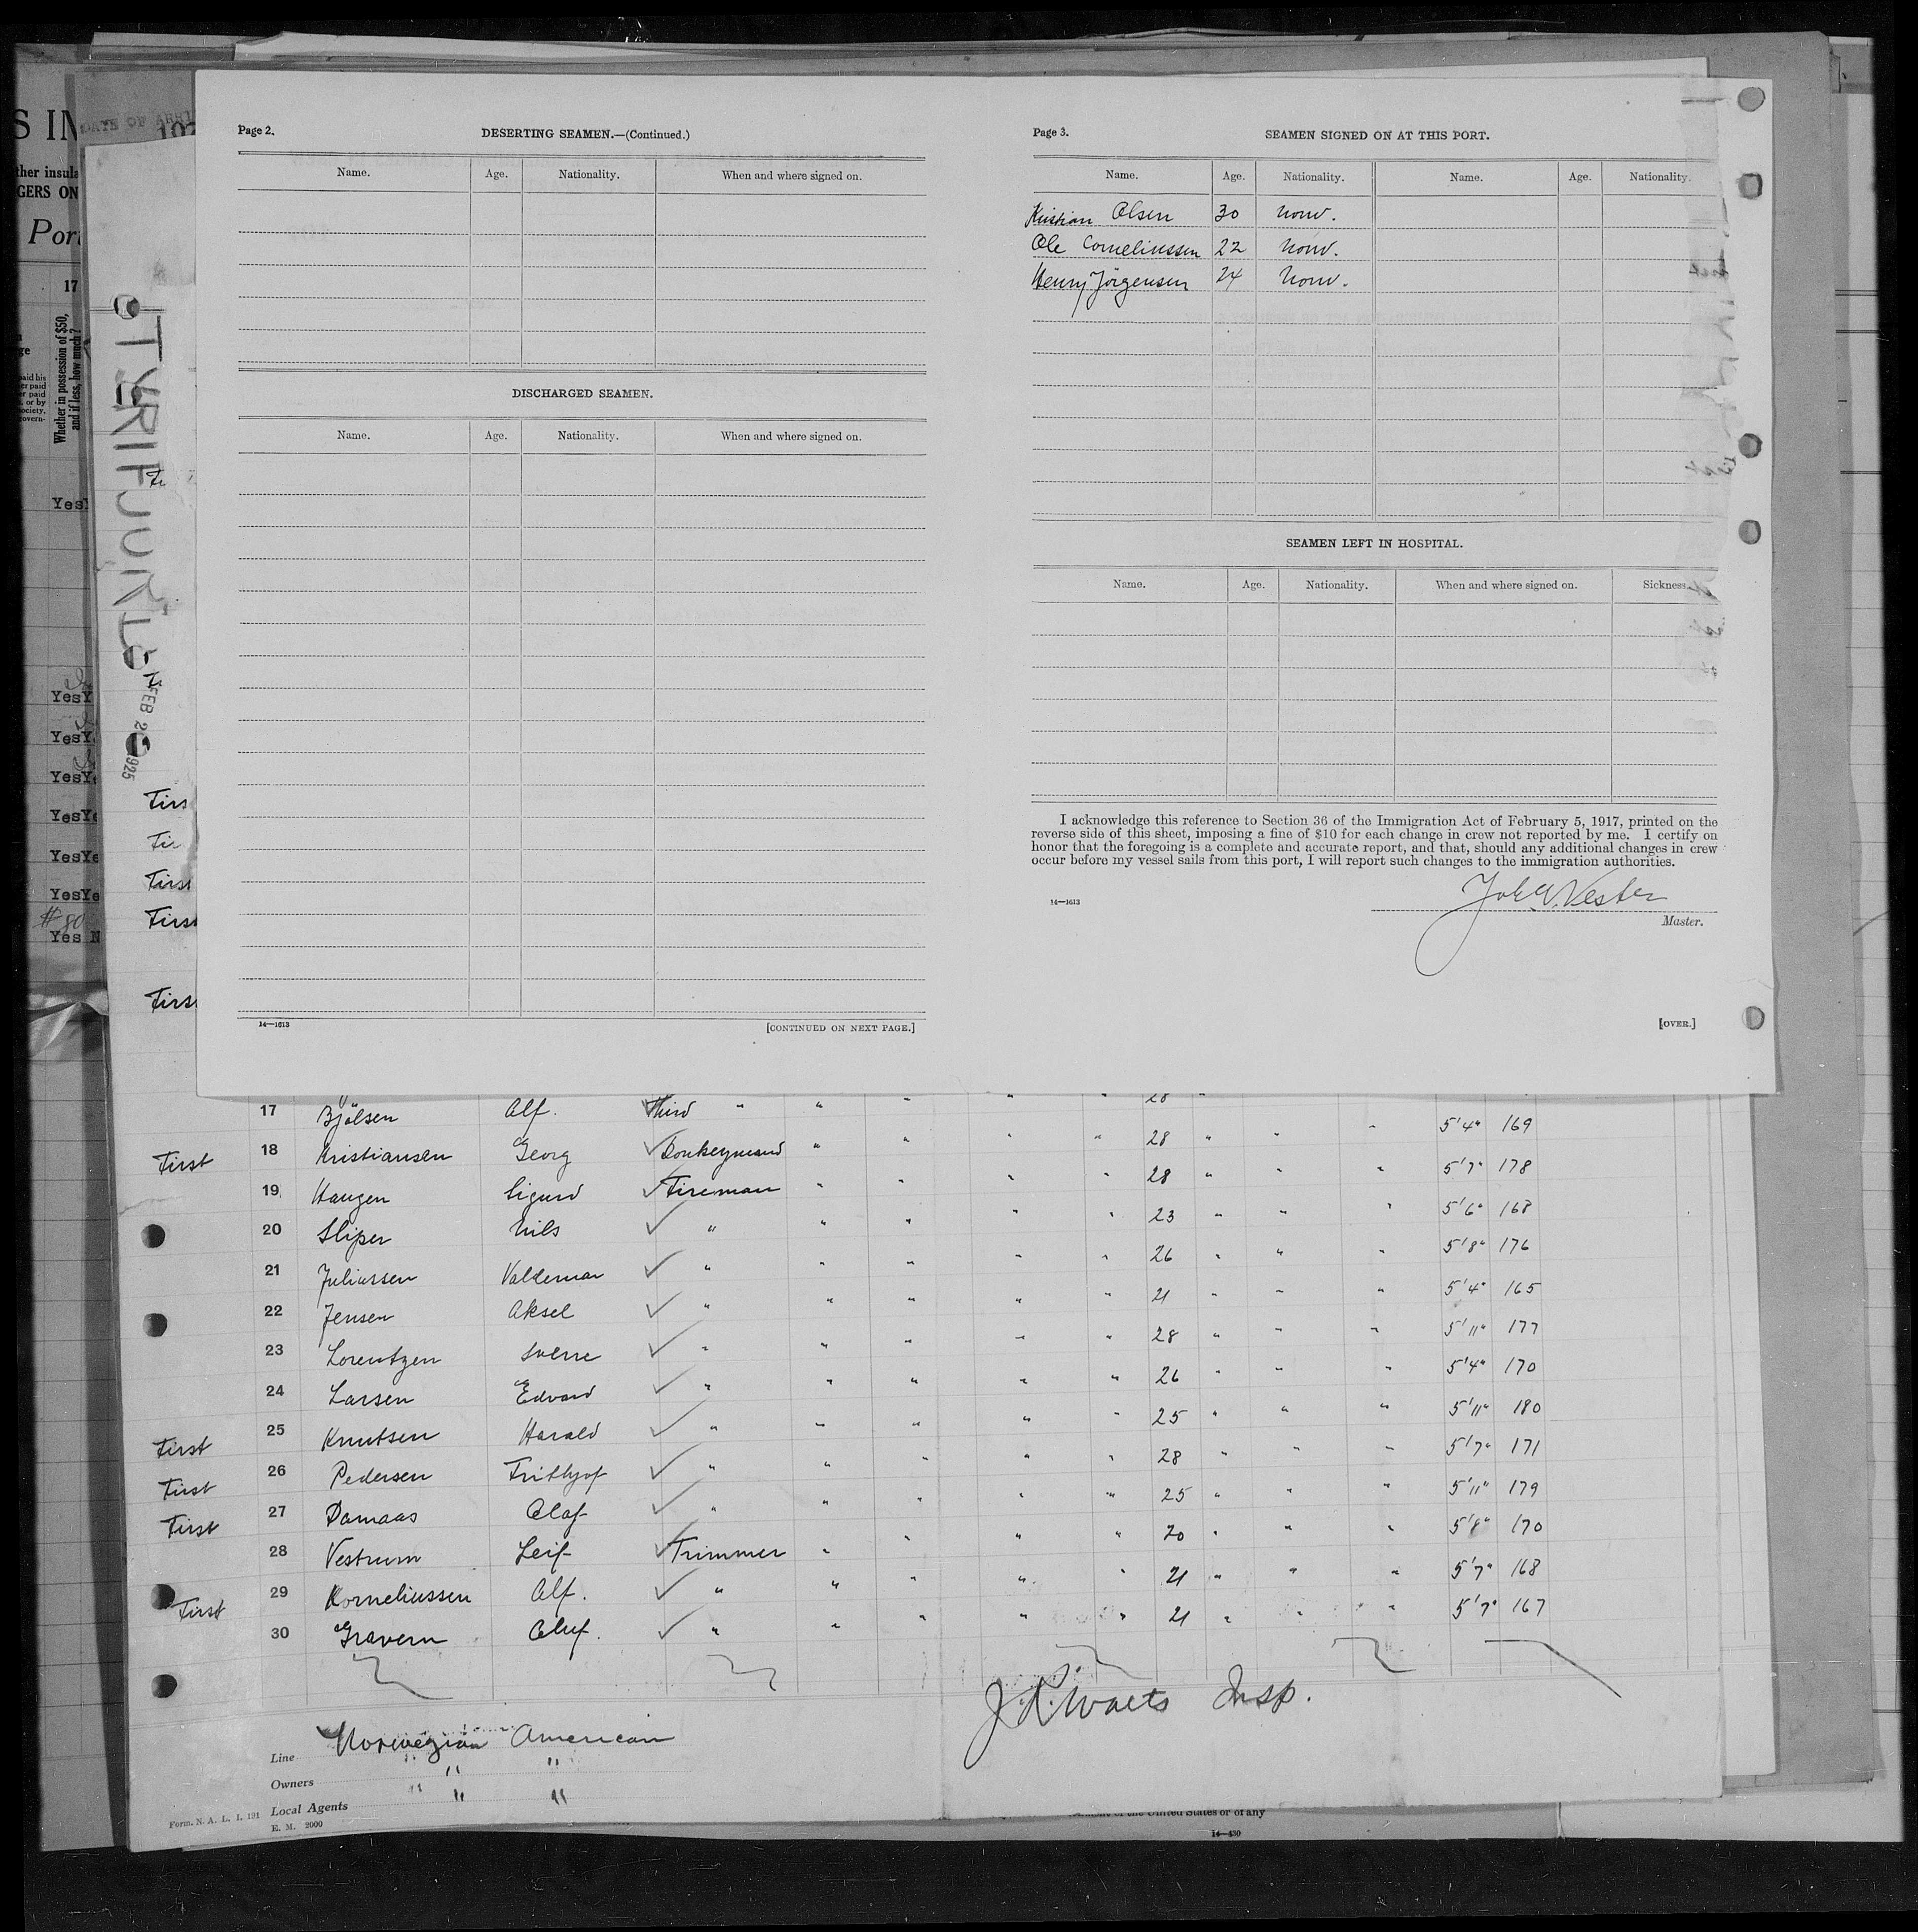 Page 2.
DESERTING SEAMEN.—(Continued.)
Name. Age. Nationality. When and where signed on.
DISCHARGED SEAMEN.
Name. Age. Nationality. When and where signed on.
14—1613
[CONTINUED ON NEXT PAGE.]
Page 3.
SEAMEN SIGNED ON AT THIS PORT.
Name. Age. Nationality. Name. Age. Nationality.
Kristian Olsen 30 Norw.
Ole Corneliussen 22 Norw.
Henry Jörgensen 24 Norw.
SEAMEN LEFT IN HOSPITAL.
Name. Age. Nationality. When and where signed on. Sickness.
I acknowledge this reference to Section 36 of the Immigration Act of February 5, 1917, printed on the
reverse side of this sheet, imposing a fine of $10 for each change in crew not reported by me. I certify on
honor that the foregoing is a complete and accurate report, and that, should any additional changes in crew
occur before my vessel sails from this port, I will report such changes to the immigration authorities.
14—1613
Master.
[OVER.]
S IM
DATE OF ARRI
ther insula
GERS ON
Port
17
Whether in possession of $50,
and if less, how much?
TYRIFJORD
FEB 2 1925
Yes
YesY
YesY
YesY
YesYe
YesYe
YesYe
#80
Yes N
First
First
First
First
17 Bjölsen Alf. Third " " " " " 28 "
First 18 Kristiansen Georg Donkeymand " " " " 28 " " " 5'4" 169
19 Haugen Sigurd Fireman " " " " 28 " " " 5'7" 178
20 Sliper Nils " " " " " 23 " " " 5'6" 168
21 Juliussen Valdemar " " " " " 26 " " " 5'8" 176
22 Jensen Aksel " " " " " 21 " " " 5'4" 165
23 Lorentzen Sverre " " " " " 28 " " " 5'11" 177
24 Larsen Edvard " " " " " 26 " " " 5'4" 170
First 25 Knutsen Harald " " " " " 25 " " " 5'11" 180
First 26 Pedersen Frithjof " " " " " 28 " " " 5'7" 171
First 27 Damaas Olaf " " " " " 25 " " " 5'11" 179
28 Vestrum Leif Trimmer " " " " 20 " " " 5'8" 170
First 29 Korneliussen Alf. " " " " " 21 " " " 5'7" 168
30 Gravern Oluf. " " " " " 21 " " " 5'7" 167
Insp.
Line Norwegian American
Owners " "
Local Agents " "
Form. N. A. L. I. 191
E. M. 2000
of the United States or of any
14—430